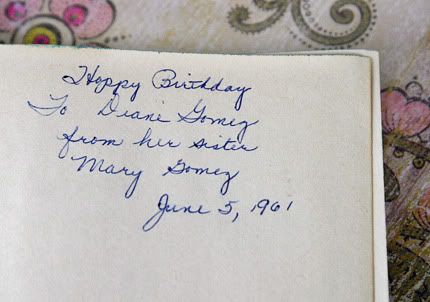 Happy Birthday
To Deane Gomez
from her sister
Mary Gomez
June 5, 1961